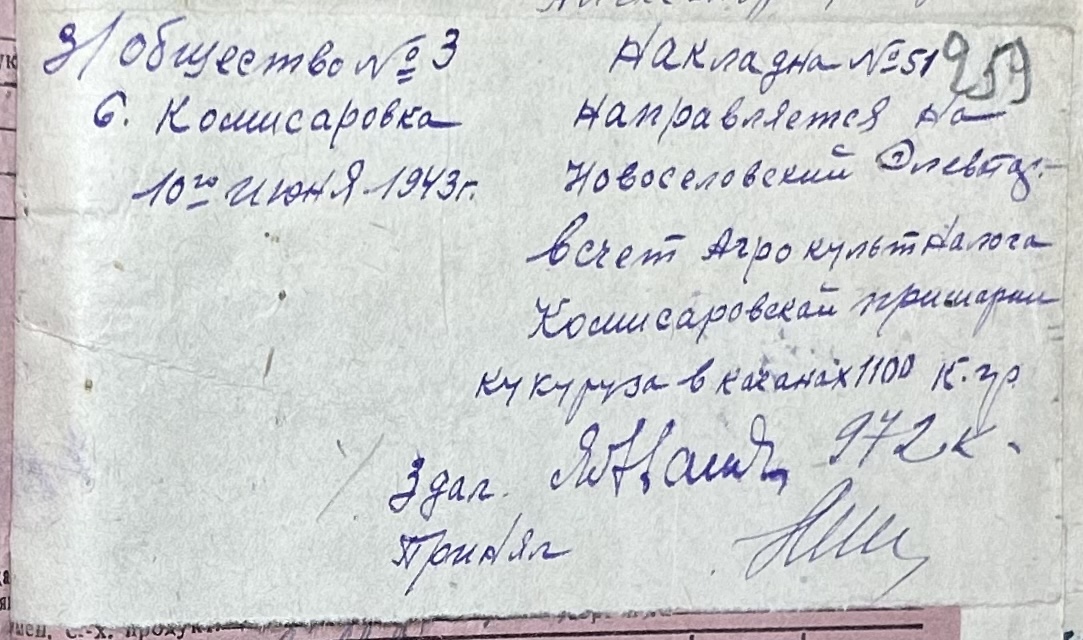 З/общество № 3
с. Комисаровка
10го июня 1943 г.
Накладна № 51
259
Направляется на
Новоселовский
в счет Агрокульт налога
Комисаровской примарии
кукуруза в качанах 1100 к.гр.
972 к.
Здал.
Принял
мен. с.-х. продукт